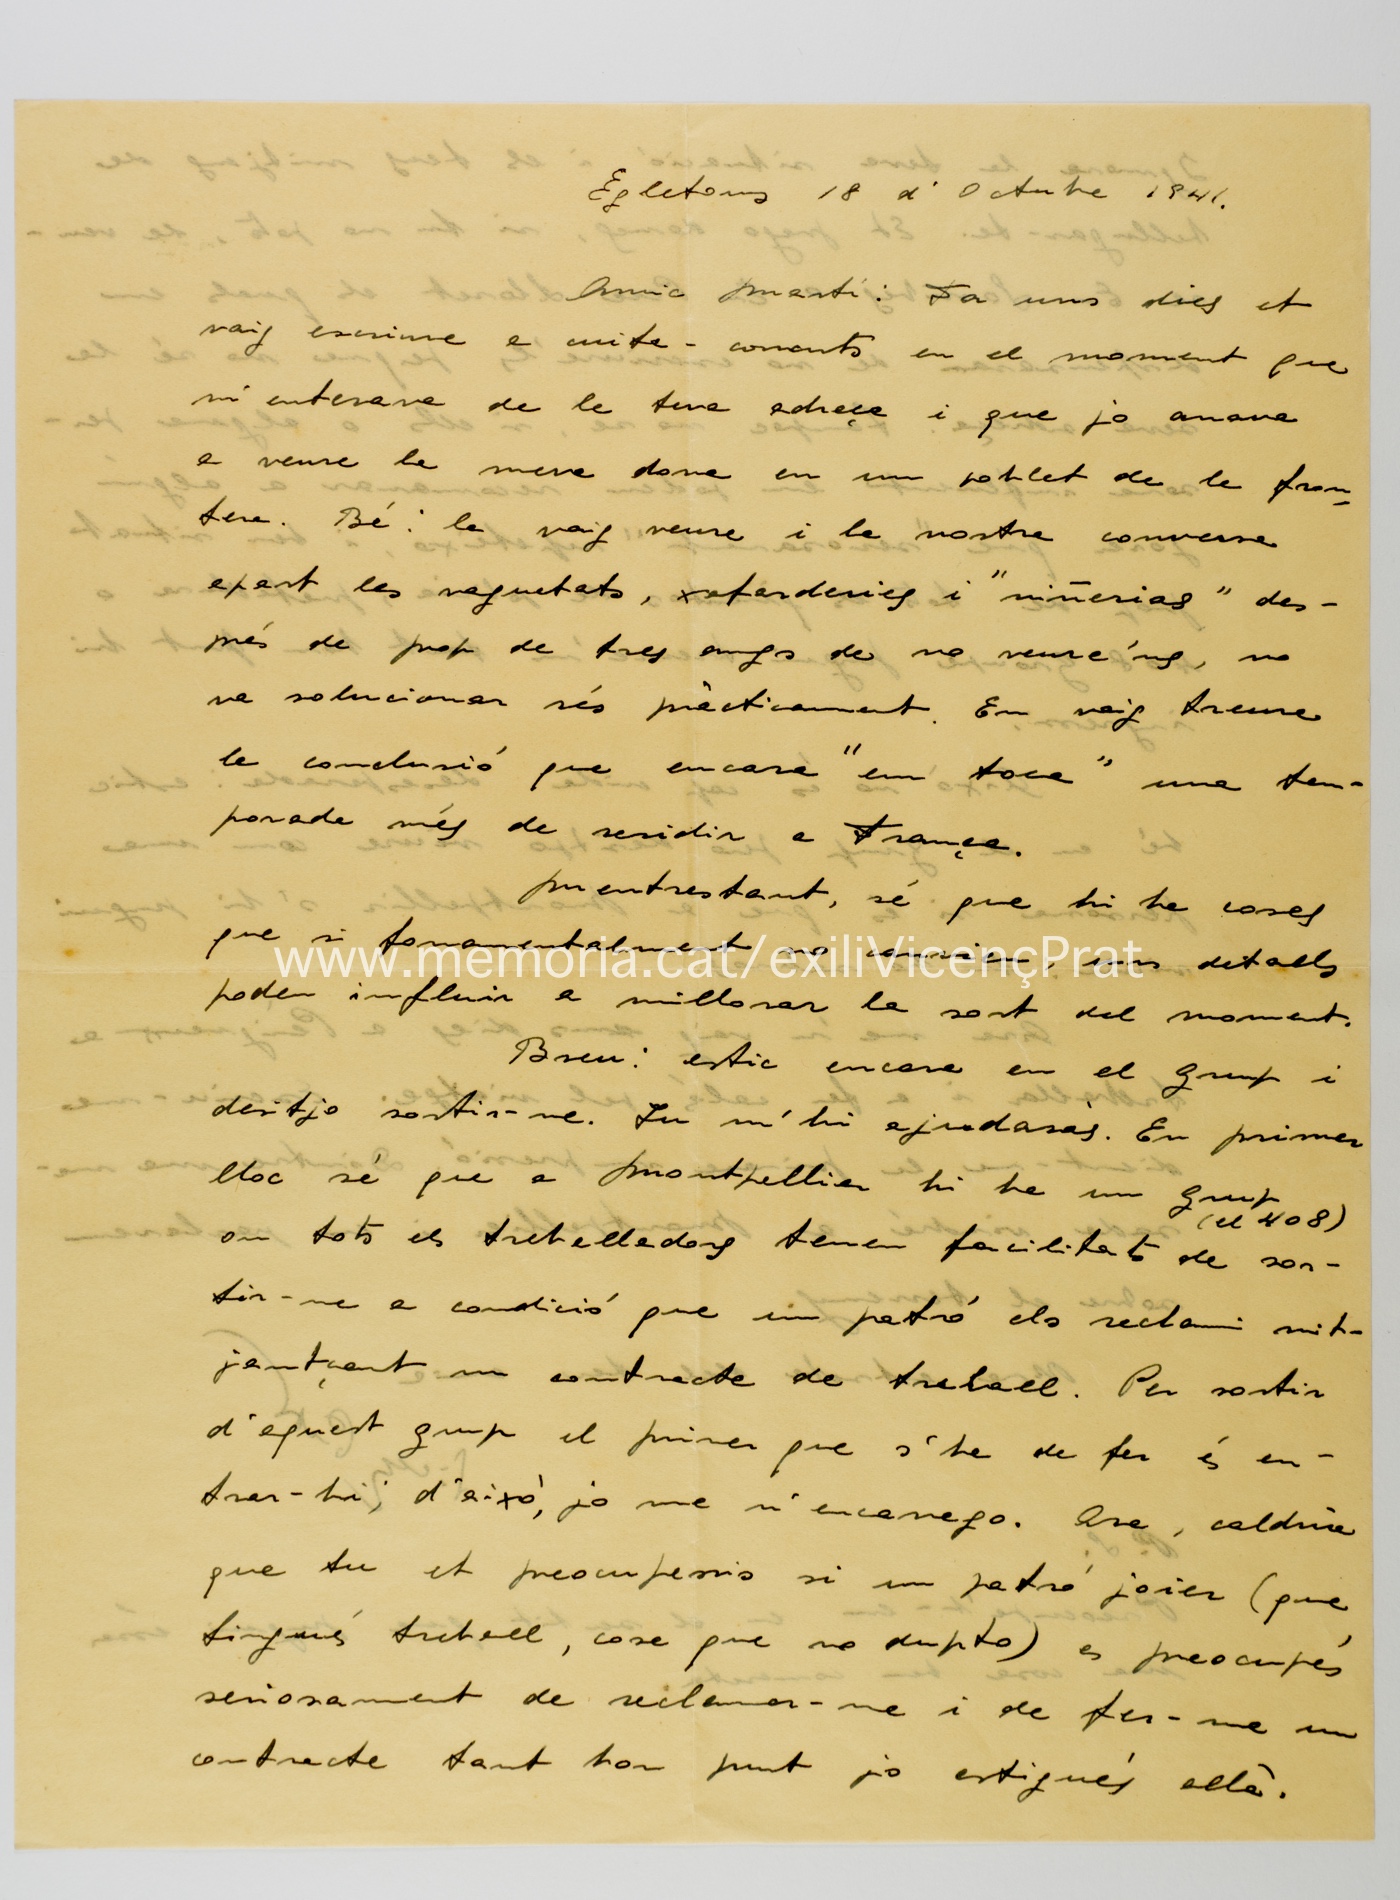 Egletons 18 d'Octubre 1941.
Amic Martí: Fa uns dies et
vaig escriure a cuita-corrents en el moment que
m'enterava de la teva adreça i que jo anava
a veure la meva dona en un poblet de la fron-
tera. Bé: la vaig veure i la nostra conversa
apart les vaguetats, xafarderies i "niñerias" des-
prés de prop de tres anys de no veure'ns, no
va solucionar rés pràcticament. En vaig treure
la conclusió que encara "em toca" una tem-
porada més de residir a França.
Mentrestant, sé que hi ha coses
que si fonamentalment no canvien, uns detalls
poden influir a millorar la sort del moment.
Breu: estic encara en el grup i
desitjo sortir-ne. Tu m'hi ajudaràs. En primer
lloc sé que a Montpellier hi ha un grup
(el 408)
on tots els treballadors tenen facilitats de sor-
tir-ne a condició que un patró els reclami mit-
jantçant un contracte de treball. Per sortir
d'aquest grup el primer que s'ha de fer és en-
trar-hi; d'aixó, jo me n'encarrego. Ara, caldria
que tu et preocupessis si un patró joier (que
tingués treball, cosa que no dupto) es preocupés
seriosament de reclamar-me i de fer-me un
contracte tant bon punt jo estigués allà.
www.memoria.cat/exiliVicençPrat